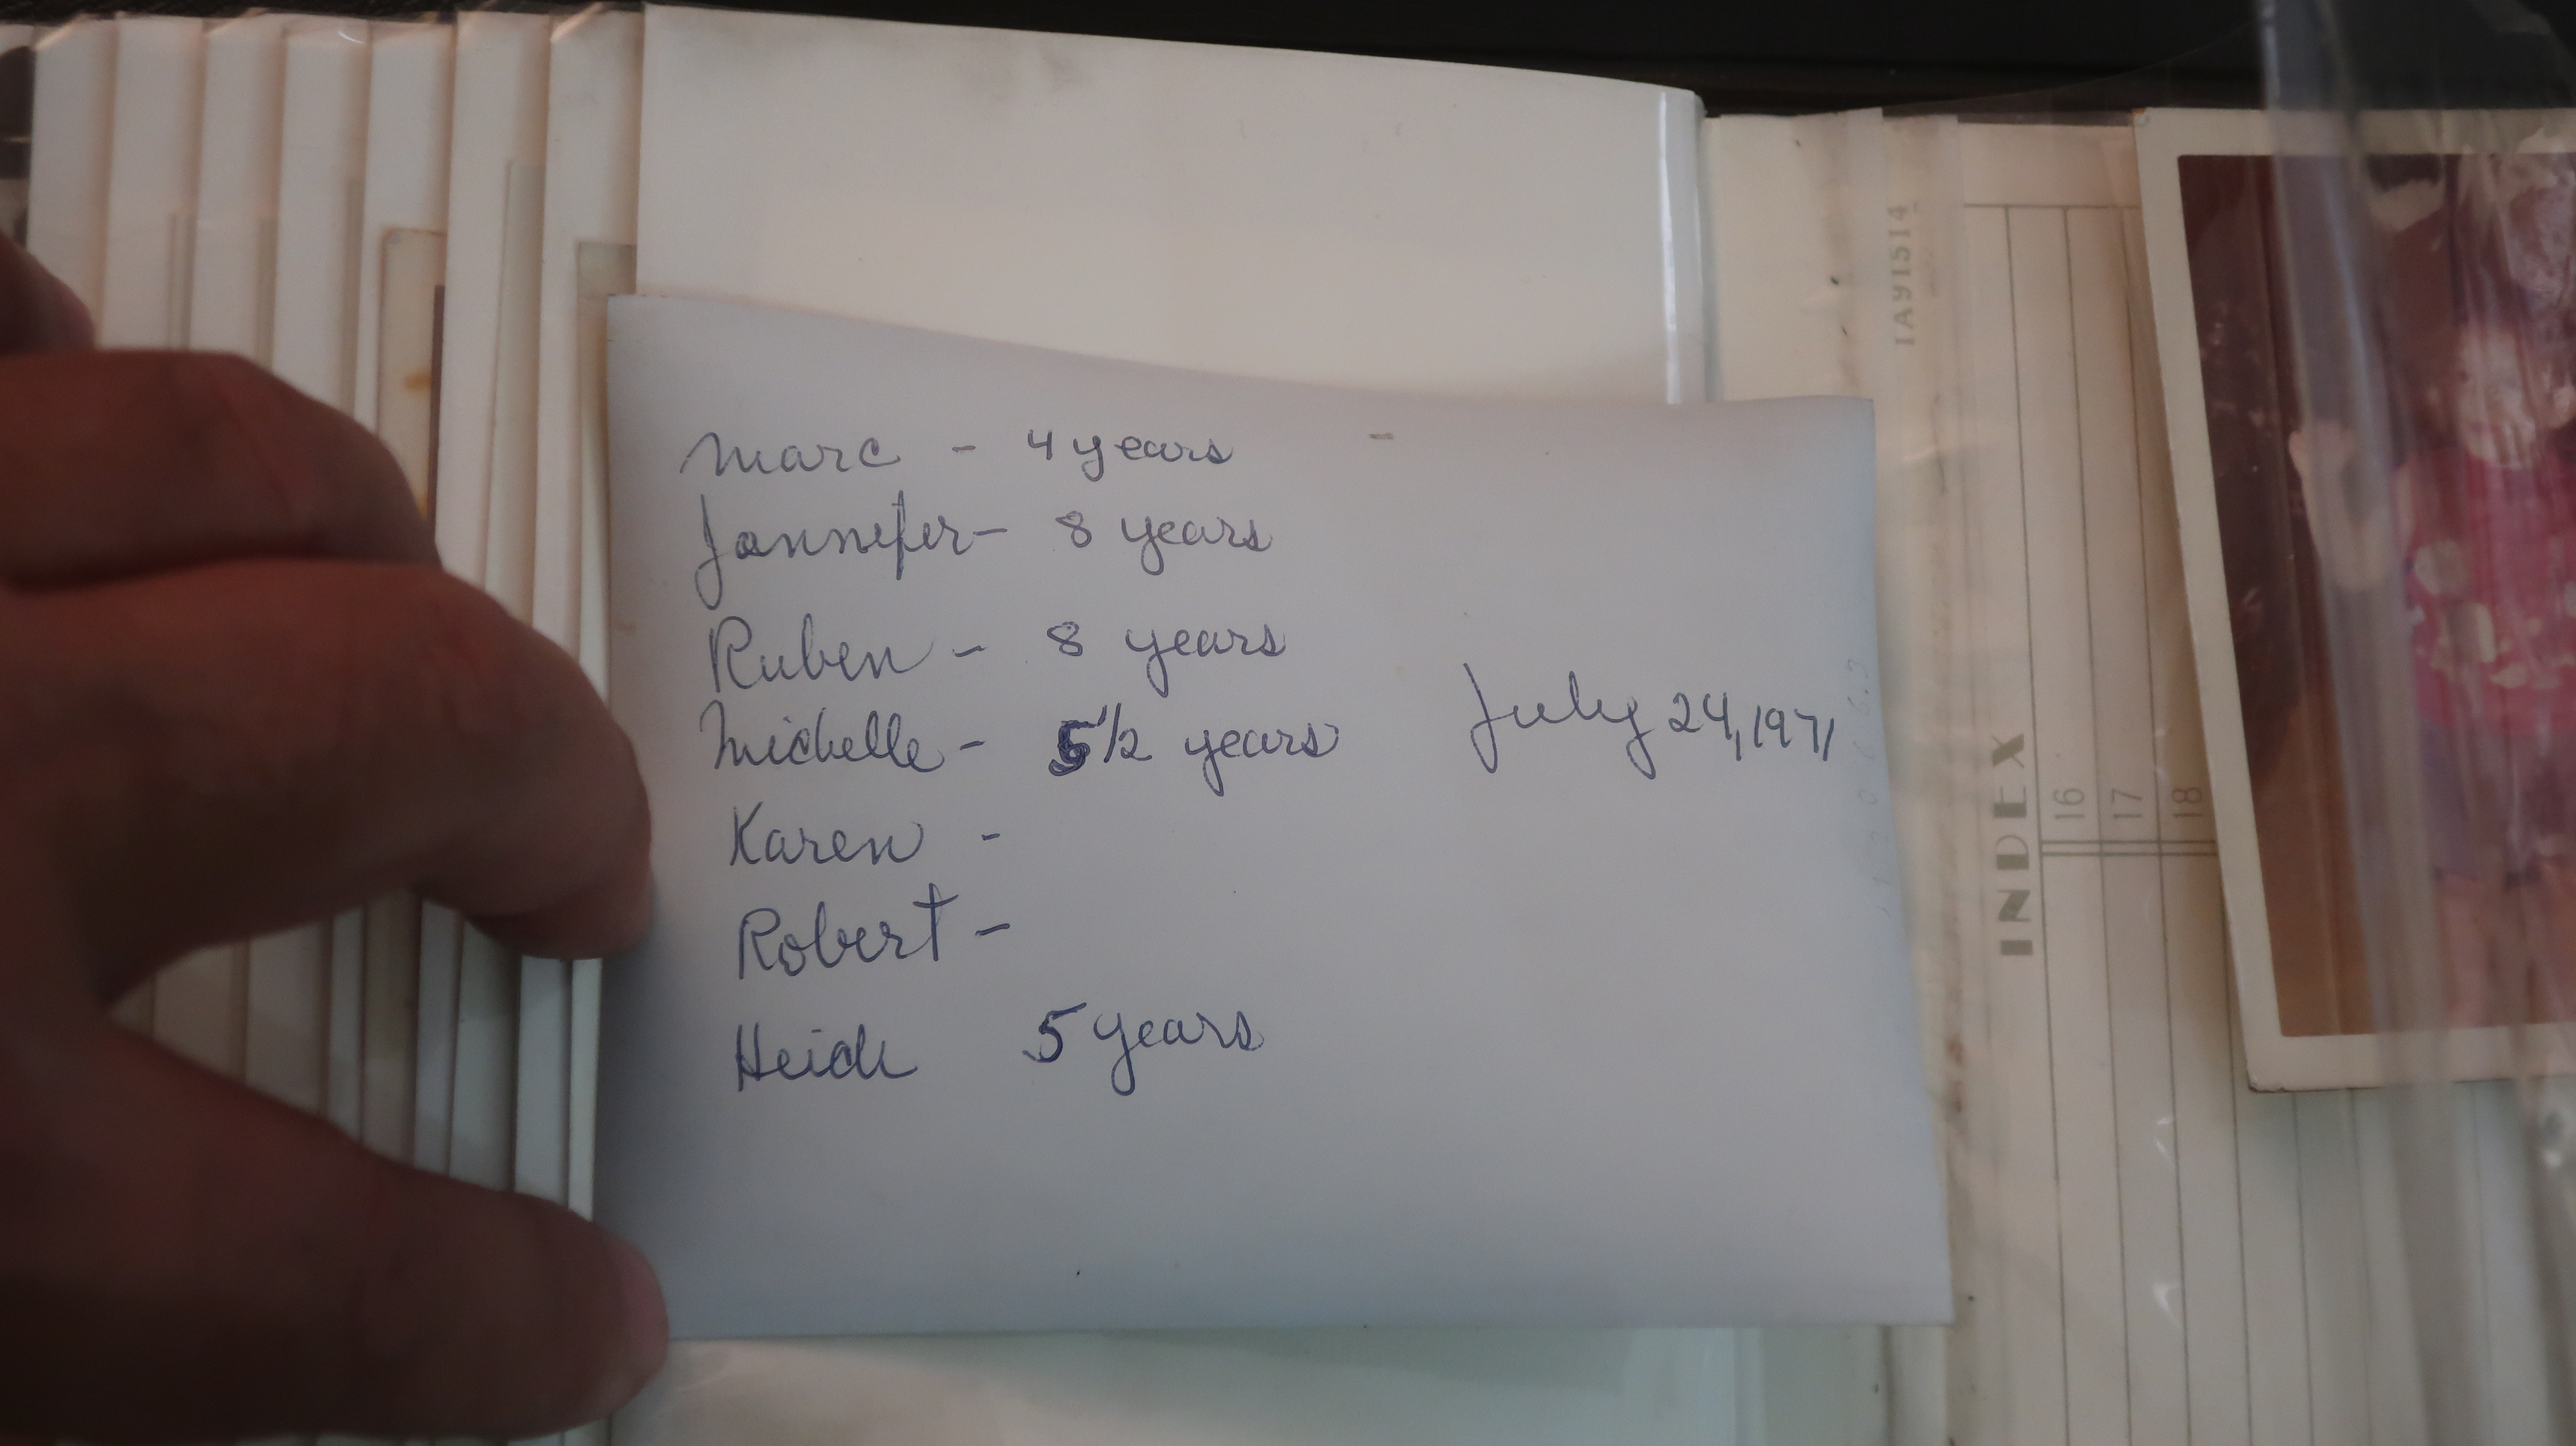 Marc - 4 years
Jennifer - 8 years
Ruben - 8 years
Michelle - 5 1/2 years
July 24, 1971
Karen -
Robert -
Heidi 5 years
IA91514
INDEX
16
17
18